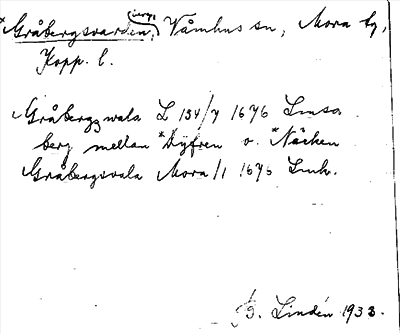 *Gråbergsvarden, Våmhus sn, Mora tg,
Kopp. l.
Gråbergzwala L 134/7 1676 Lmsa.
berg mellan *Dyfren o. *Näcken
Gråbergsvala Mora/1 1676 Lmk.
B. Lindén 1933.